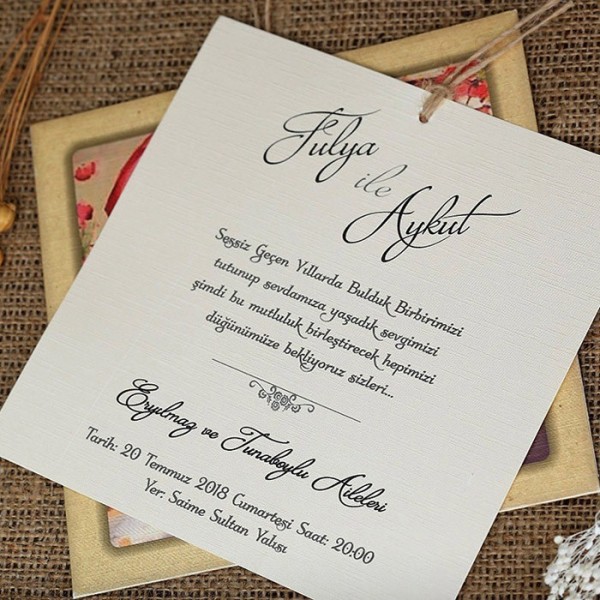 Fulya
ile
Aykut
Sessiz Geçen Yıllarda Bulduk Birbirimizi
tutunup sevdamıza yaşadık sevgimizi
şimdi bu mutluluk birleştirecek hepimizi
düğünümüze bekliyoruz sizleri...
Eryılmaz ve Tunaboylu Aileleri
Tarih: 20 Temmuz 2018 Cumartesi Saat: 20:00
Yer: Saime Sultan Yalısı